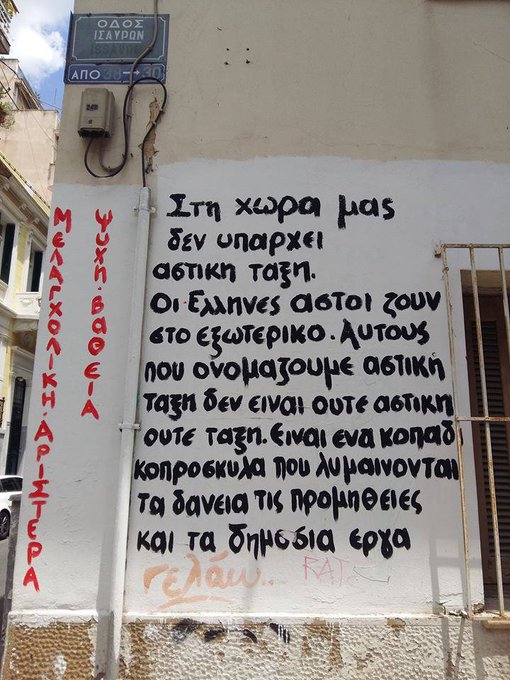 ΟΔΟΣ
ΙΣΑΥΡΩΝ
ISSAVRON
ΑΠΟ 36 → 30
ΨΥΧΗ·ΒΑΘΕΙΑ
ΜΕΛΑΓΧΟΛΙΚΗ·ΑΡΙΣΤΕΡΑ
Στη χωρα μας
δεν υπαρχει
αστικη ταξη.
Οι Ελληνες αστοι ζουν
στο εξωτερικο. Αυτους
που ονομαζουμε αστικη
ταξη δεν ειναι ουτε αστικη
ουτε ταξη. Ειναι ενα κοπαδι
κοπροσκυλα που λυμαινονται
τα δανεια τις προμηθειες
και τα δημοσια εργα
γελάω...